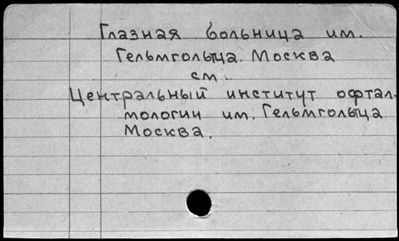 Глазная больница им.
Гельмгольца. Москва
см.
Центральный институт офтал-
мологии им. Гельмгольца
Москва.